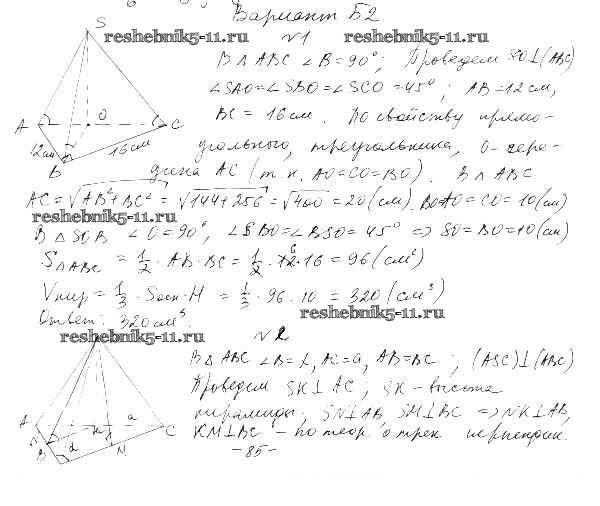 Вариант Б2
reshebnik5-11.ru reshebnik5-11.ru
№1
S
A
O
C
B
12см
16см
В △ABC ∠B=90°; Проведем SO⊥(ABC)
∠SAO=∠SBO=∠SCO=45°; AB=12см,
BC=16см. По свойству прямо-
угольного, треугольника, O-сере-
дина AC (т.к. AO=CO=BO). В △ABC
AC=√AB²+BC² = √144+256 = √400 = 20(см). BO=AO=CO=10(см)
reshebnik5-11.ru
В △SOB ∠O=90°, ∠SBO=∠BSO=45° ⇒ SO=BO=10(см)
S△ABC = 1/2 · AB·BC = 1/2 · 12 · 16 = 96(см²)
6
Vпир = 1/3 · Sосн·H = 1/3 · 96 · 10 = 320(см³)
reshebnik5-11.ru
Ответ: 320см³.
reshebnik5-11.ru
№2
A
N
B
K
a
C
M
В △ABC ∠B=α, AC=a, AB=BC; (ASC)⊥(ABC)
Проведем SK⊥AC; SK-высота
пирамиды; SN⊥AB, SM⊥BC ⇒ NK⊥AB,
KM⊥BC - по теор. о трех перпендик.
-85-